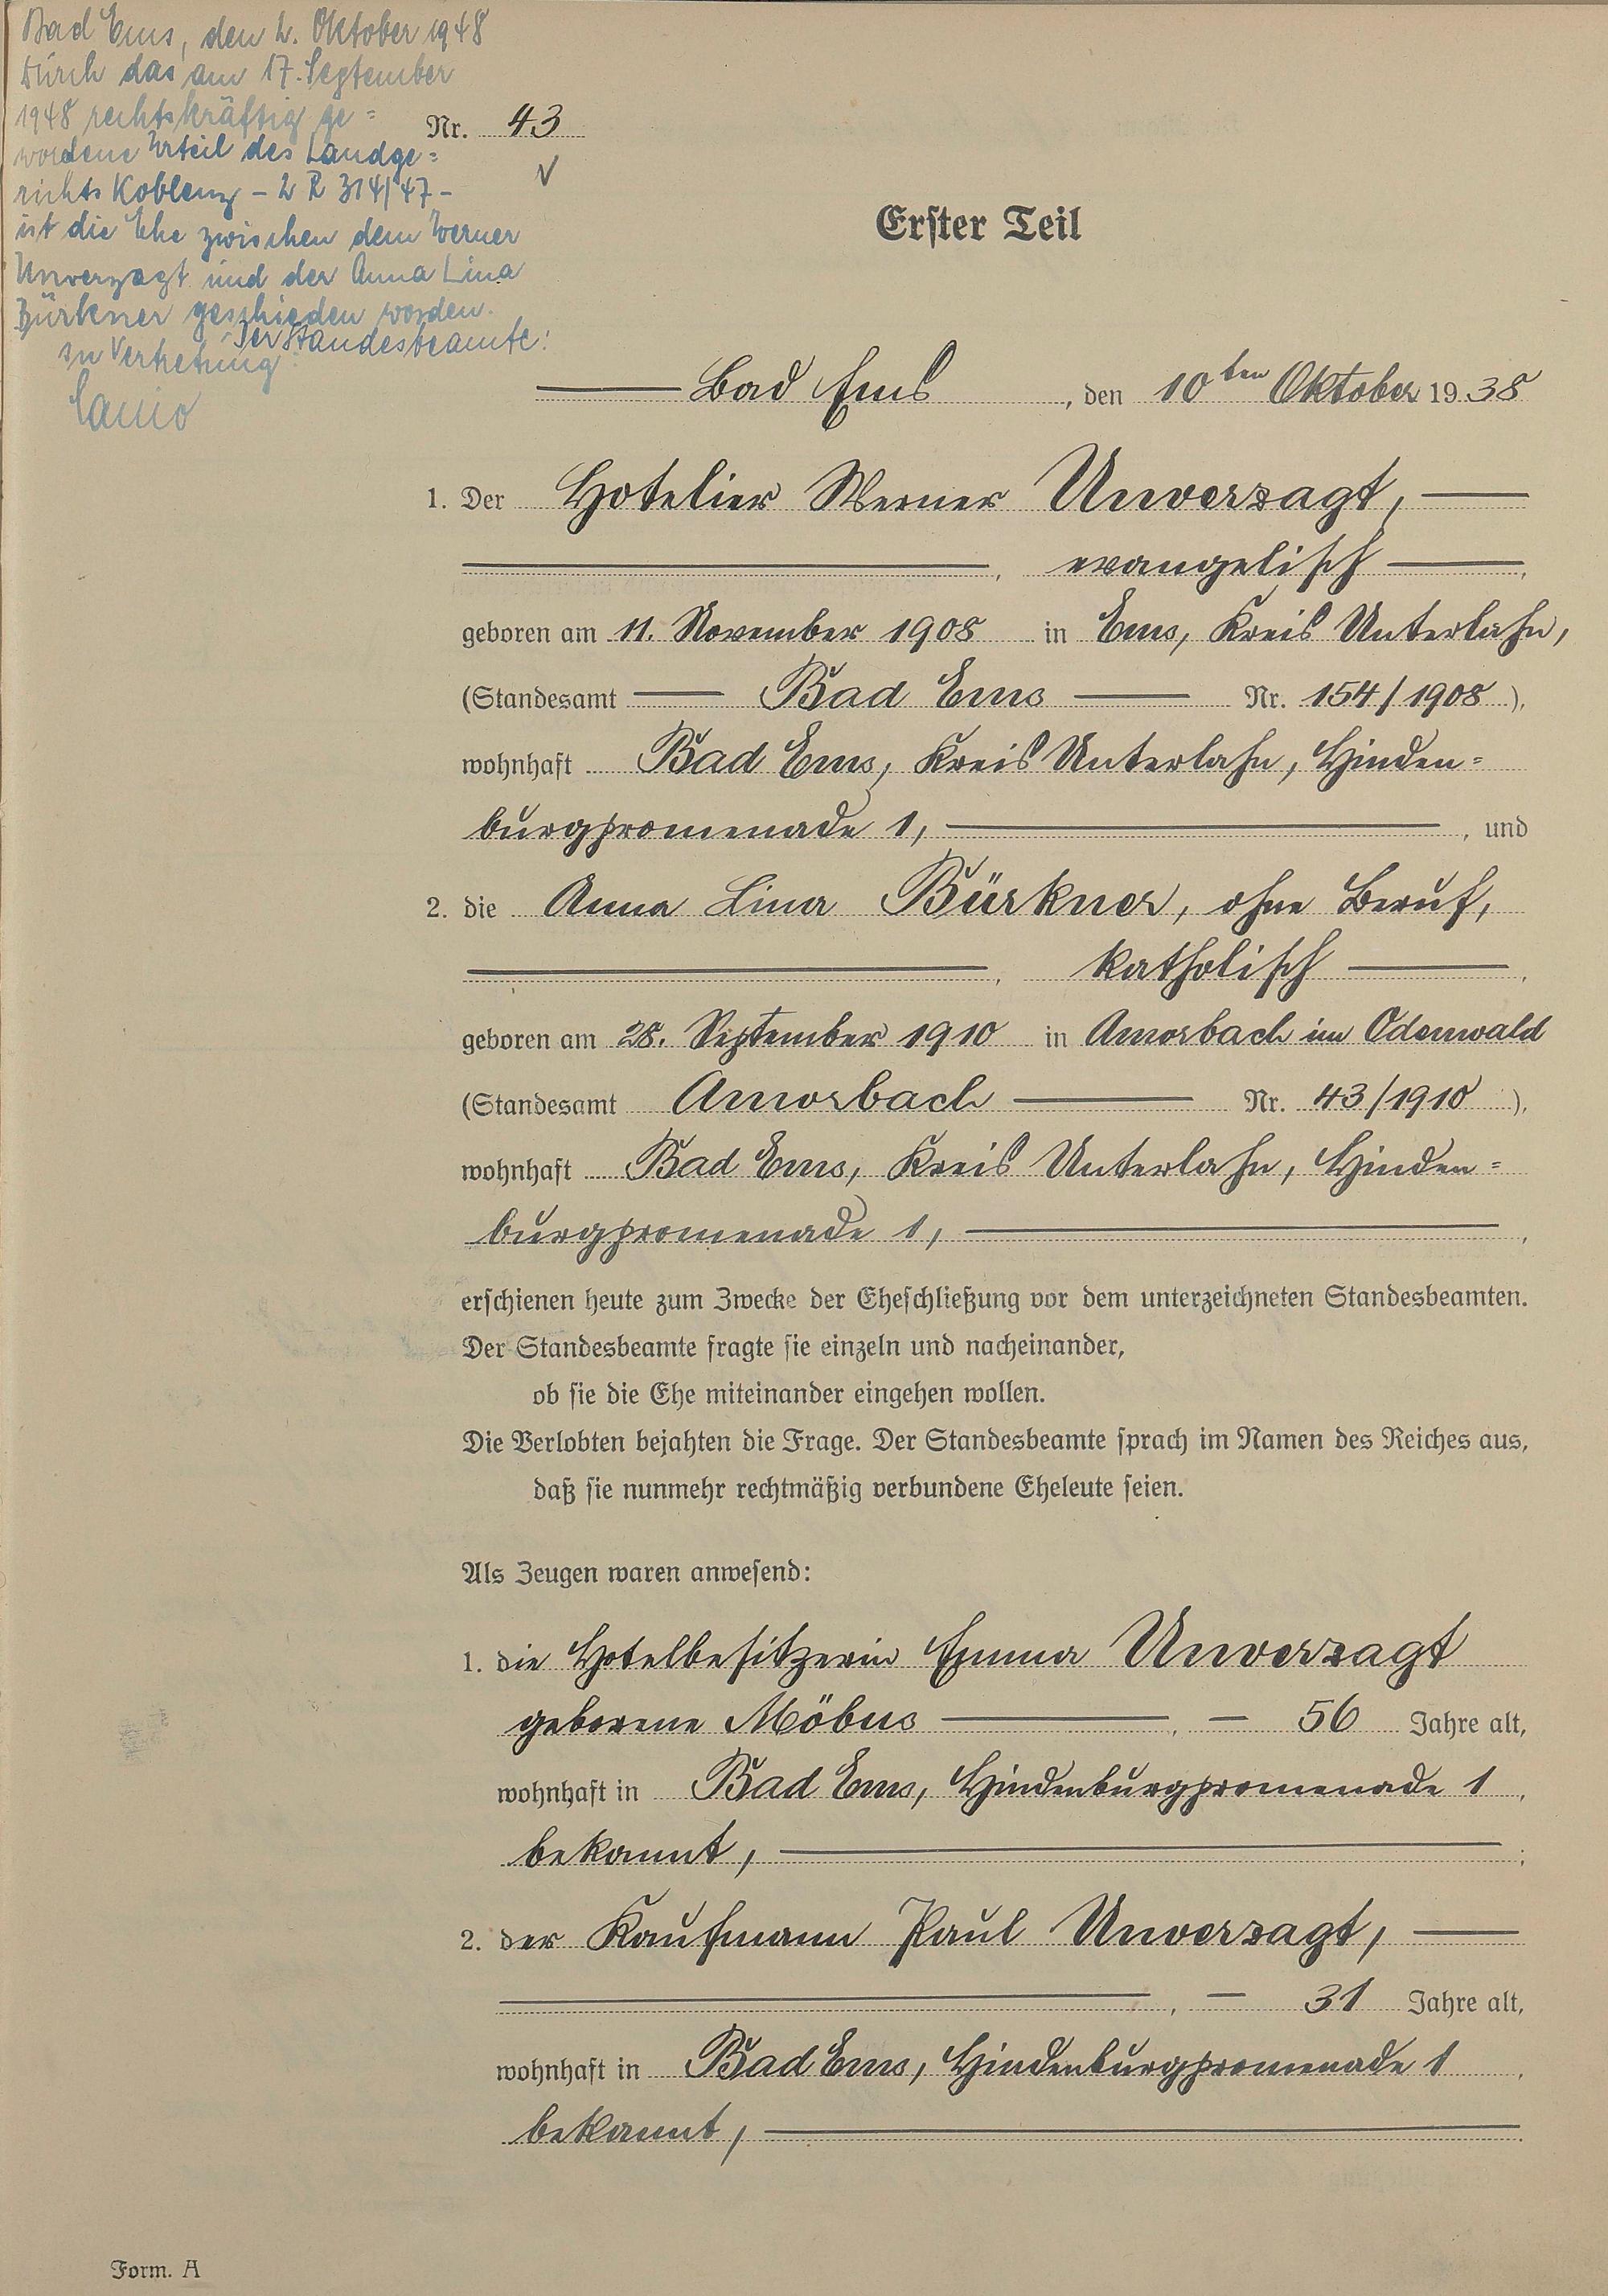 Bad Ems, den 2. Oktober 1948
Durch das am 17. September
1948 rechtskräftig ge=
wordene Urteil des Landge=
richts Koblenz – 2 R 314/47 –
ist die Ehe zwischen dem Werner
Unverzagt und der Anna Lina
Bürkner geschieden worden.
Der Standesbeamte:
In Vertretung
Nr. 43
Erster Teil
Bad Ems, den 10ten Oktober 1938
1. Der Hotelier Werner Unverzagt,
, evangelisch,
geboren am 11. November 1908 in Ems, Kreis Unterlahn,
(Standesamt Bad Ems Nr. 154/1908),
wohnhaft Bad Ems, Kreis Unterlahn, Hinden=
burgpromenade 1, , und
2. die Anna Lina Bürkner, ohne Beruf,
, katholisch,
geboren am 28. September 1910 in Amorbach im Odenwald
(Standesamt Amorbach Nr. 43/1910),
wohnhaft Bad Ems, Kreis Unterlahn, Hinden=
burgpromenade 1, ,
erschienen heute zum Zwecke der Eheschließung vor dem unterzeichneten Standesbeamten.
Der Standesbeamte fragte sie einzeln und nacheinander,
ob sie die Ehe miteinander eingehen wollen.
Die Verlobten bejahten die Frage. Der Standesbeamte sprach im Namen des Reiches aus,
daß sie nunmehr rechtmäßig verbundene Eheleute seien.
Als Zeugen waren anwesend:
1. die Hotelbesitzerin Emma Unverzagt
geborene Möbus , – 56 Jahre alt,
wohnhaft in Bad Ems, Hindenburgpromenade 1,
bekannt, ;
2. der Kaufmann Paul Unverzagt,
, – 31 Jahre alt,
wohnhaft in Bad Ems, Hindenburgpromenade 1,
bekannt, .
Form. A